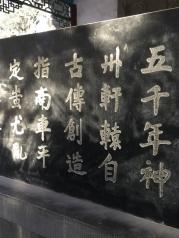 五千年神
州軒轅自
古傳創造
指南車平
定蚩尤亂